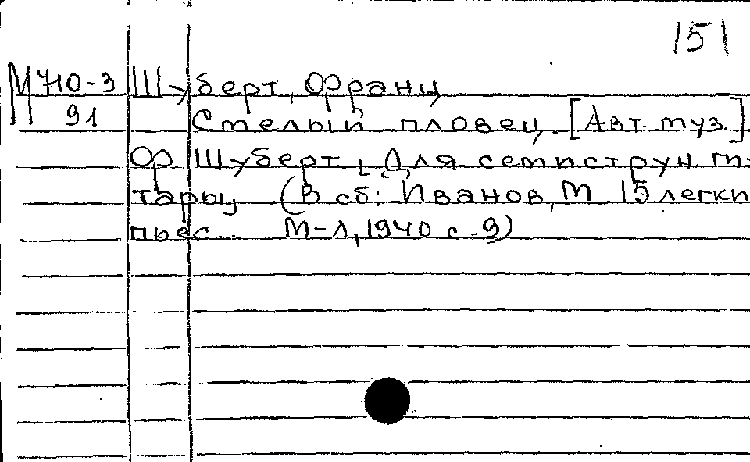 151
М 710-3 Шуберт, Франц
91 Смелый пловец. [Авт. муз.]
Фр. Шуберт, Для семиструн. ги-
тары, (В сб: Иванов, М 15 легких
пьес. М-Л, 1940 с. 9)